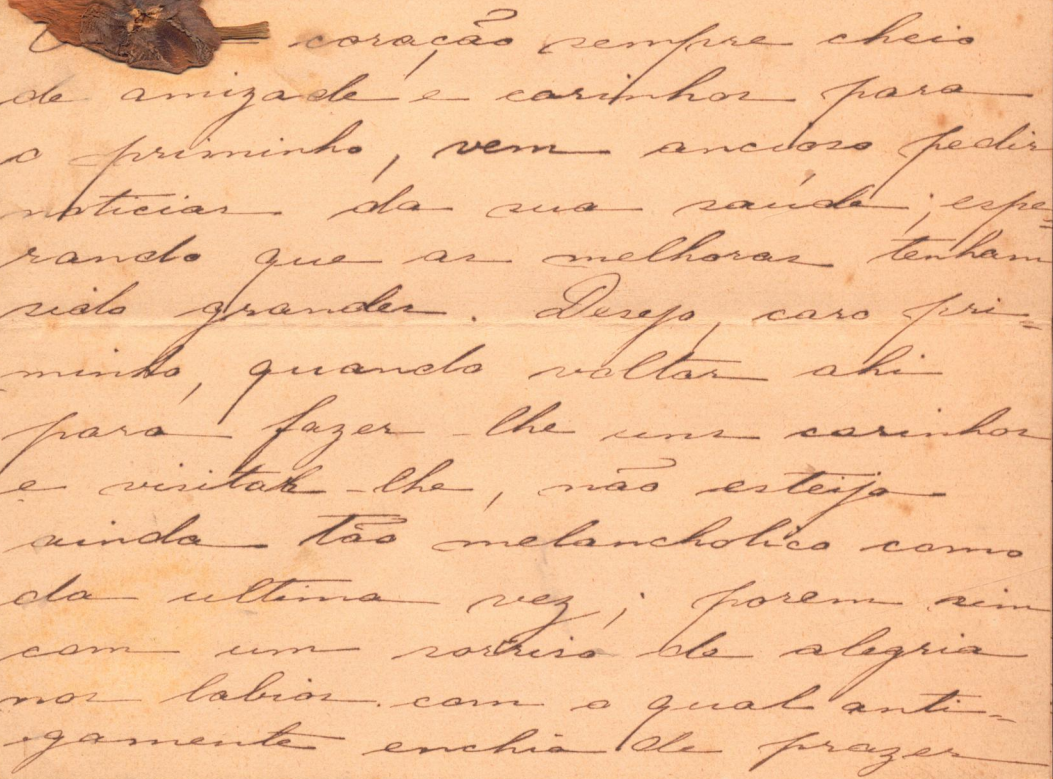 coração sempre cheio
de amizade e carinhos para
o priminho, vem ancioso pedir
noticias da sua saúde, espe=
rando que as melhoras tenham
sido grandes. Desejo, caro pri=
minho, quando voltar ahi
para fazer-lhe uns carinhos
e visitar-lhe, não esteija
ainda tão melancholico como
da ultima vez; porem sim
com um sorriso de alegria
nos labios com o qual anti=
gamente enchia de prazer